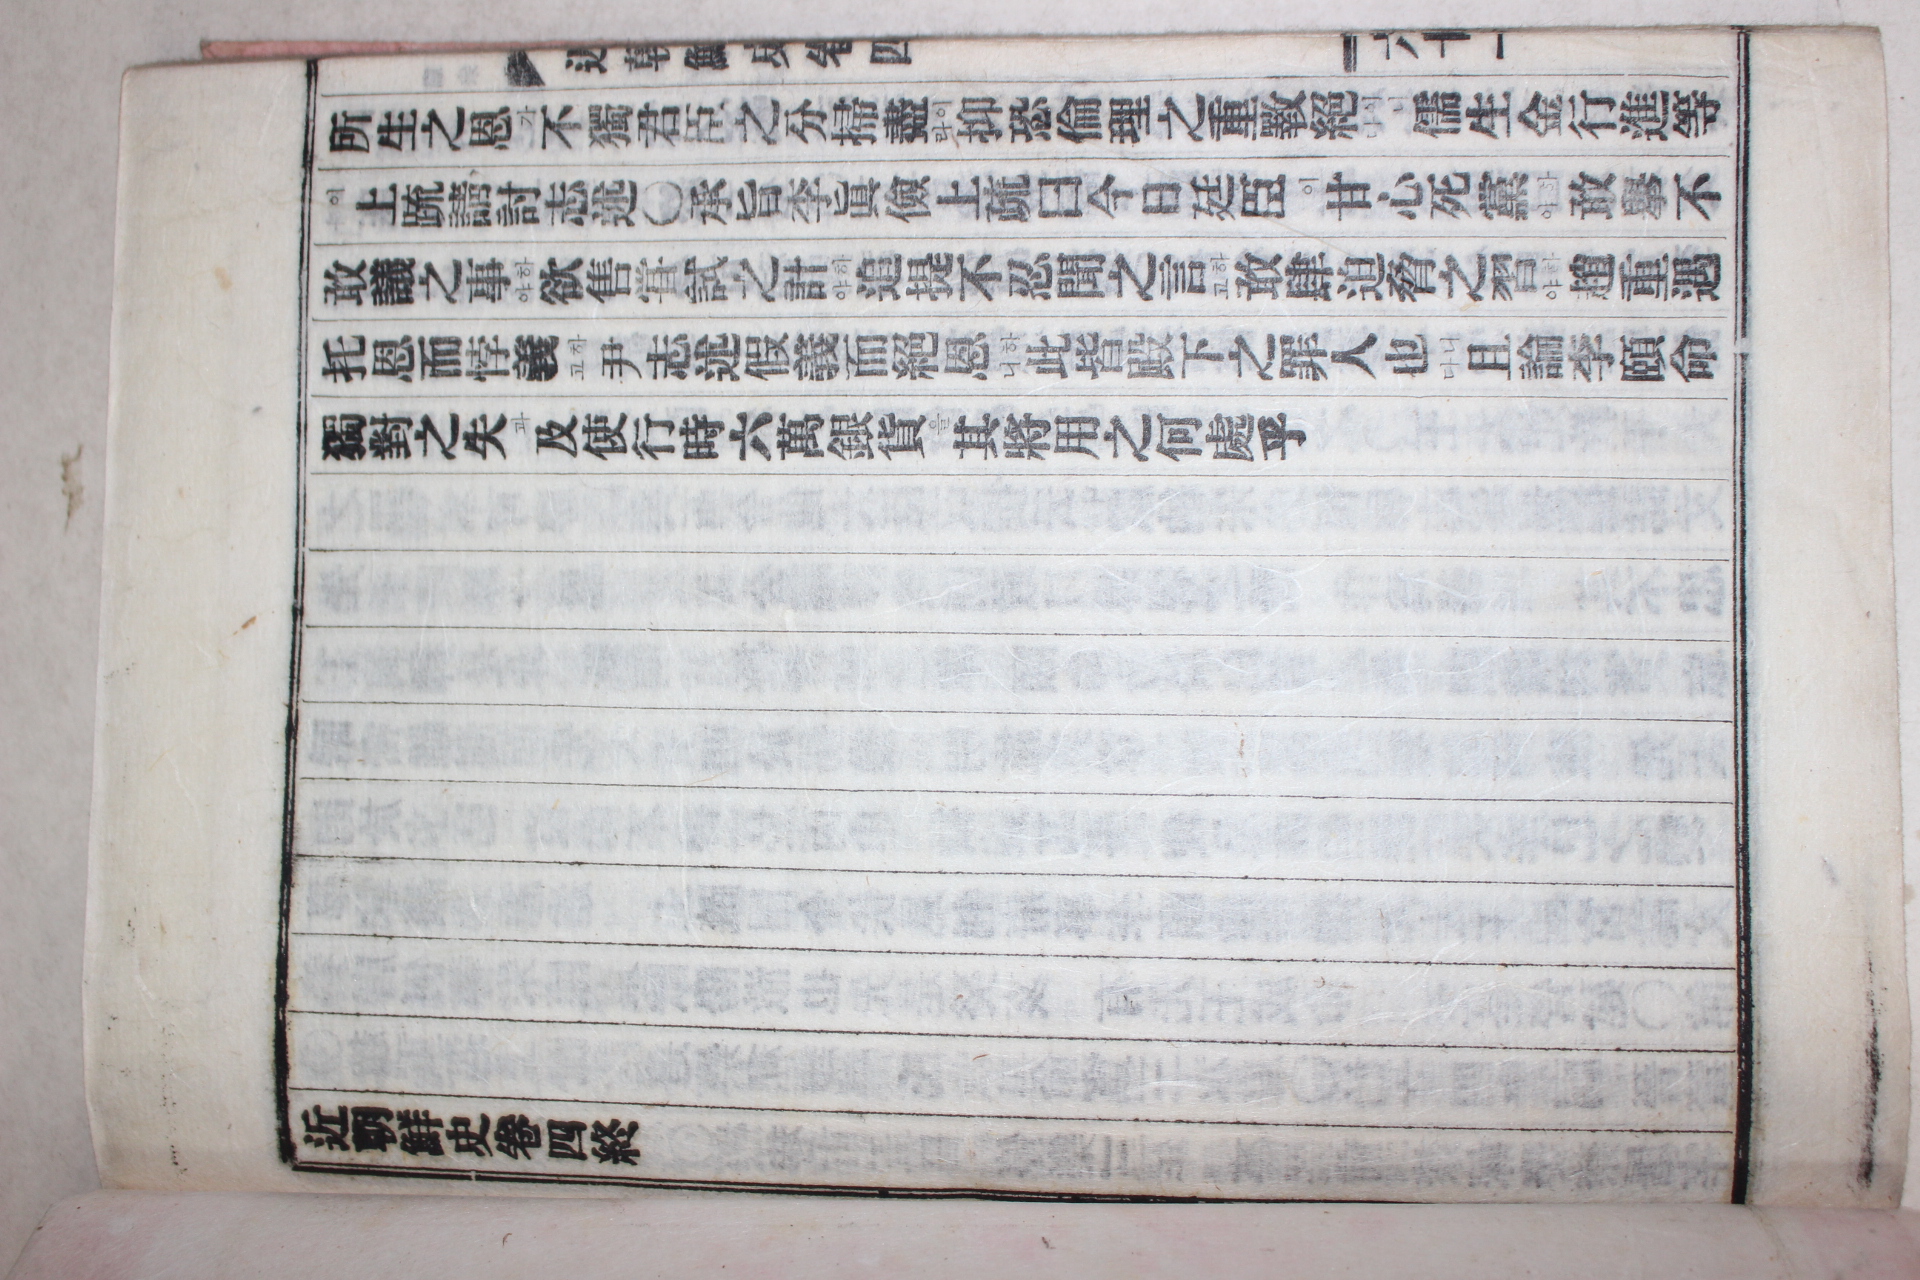 近朝鮮史卷四 六十一
所生之恩가不獨君臣之分掃盡이라抑恐倫理之重斁絶이니다儒生金行進等
이上疏請討志述〇承旨李眞儉上疏曰今日廷臣이甘心死黨하야敢擧不
敢議之事하야欲售嘗試之計하야追提不忍聞之言하고敢肆迫脅之習하야趙重遇
托恩而悖義尹志述假義而絶恩하니此皆殿下之罪人也니다且論李頤命
獨對之失과及使行時六萬銀貨을其將用之何處乎
近朝鮮史卷四終